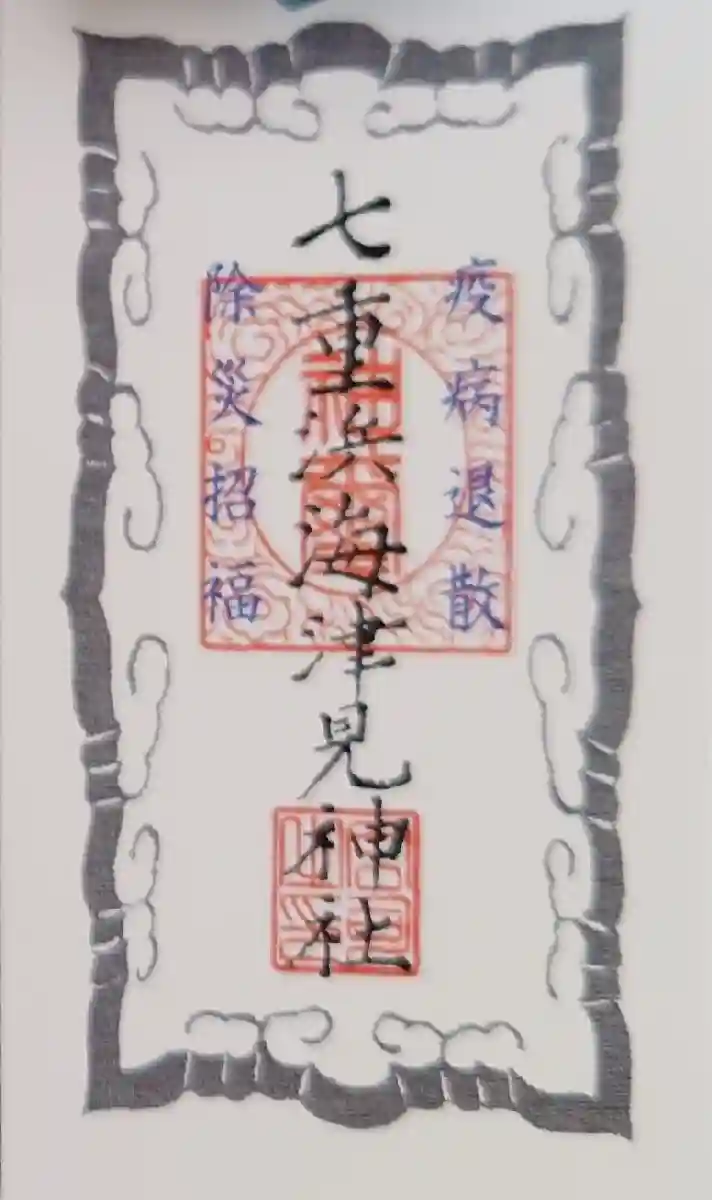 疫病退散
七重浜海津見神社
除災招福